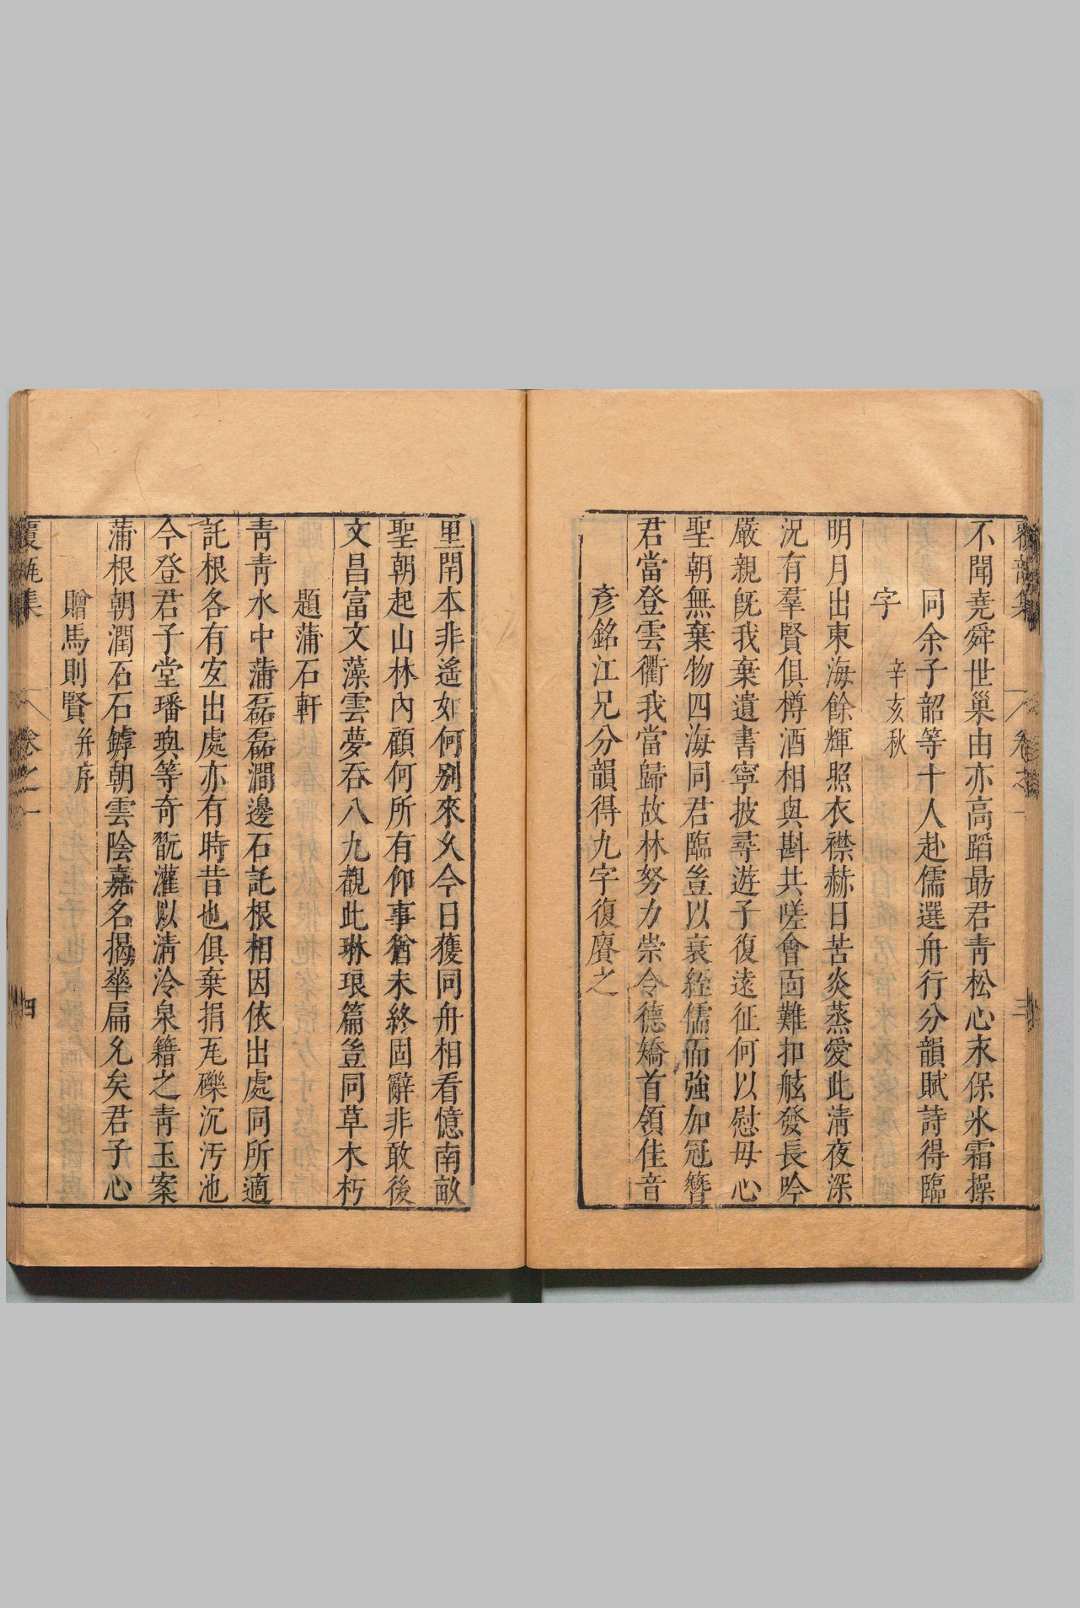 覆瓿集 卷之一 三
不聞堯舜世巢由亦高蹈最君青松心末保氷霜操
同余子韶等十人赴儒選舟行分韻賦詩得臨
字 辛亥秋
明月出東海餘輝照衣襟赫日苦炎蒸愛此清夜深
況有羣賢俱樽酒相與斟共嗟會面難扣舷發長吟
嚴親旣我棄遺書寧披尋遊子復遠征何以慰母心
聖朝無棄物四海同君臨豈以衰絰儒而強加冠簪
君當登雲衢我當歸故林努力崇令德矯首領佳音
彥銘江兄分韻得九字復賡之
里閈本非遙如何别來久今日獲同舟相看憶南畝
聖朝起山林內顧何所有仰事猶未終固辭非敢後
文昌富文藻雲夢吞八九觀此琳琅篇豈同草木朽
題蒲石軒
靑靑水中蒲磊磊澗邊石託根相因依出處同所適
託根各有宜出處亦有時昔也俱棄捐瓦礫沉汚池
今登君子堂璠璵等奇翫灌以淸泠泉籍之靑玉案
蒲根朝潤石石罅朝雲陰嘉名揭華扁允矣君子心
贈馬則賢 并序
覆瓿集 卷之一 四